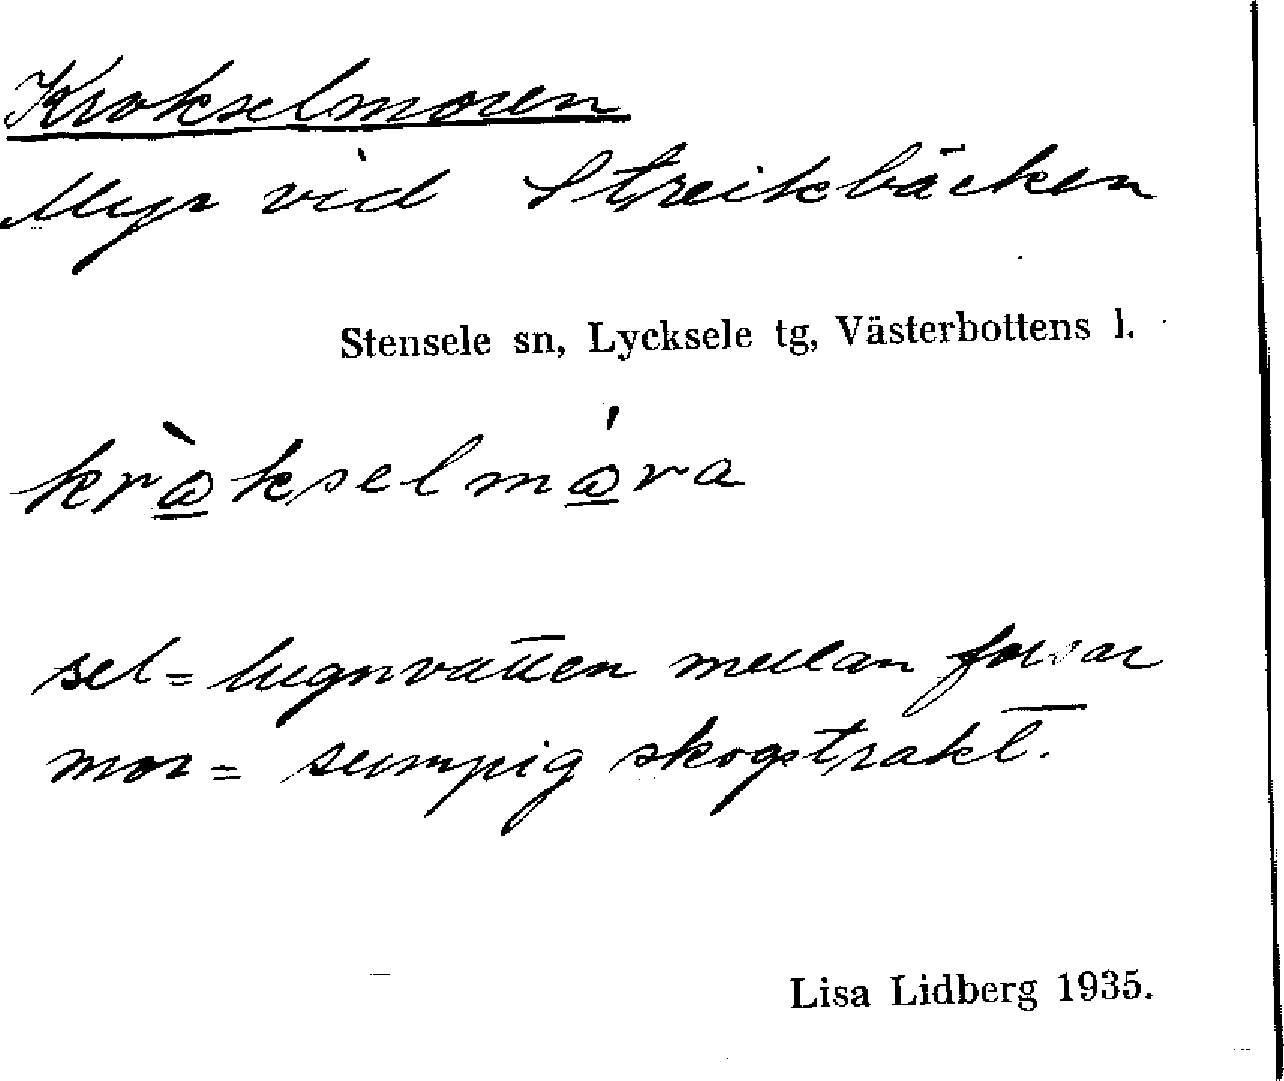 Krokselmoren
Myr vid Streikbäcken
Stensele sn, Lycksele tg, Västerbottens l.
krò̲kselmó̲ra
sel = lugnvatten mellan forsar
mor = sumpig skogstrakt.
Lisa Lidberg 1935.